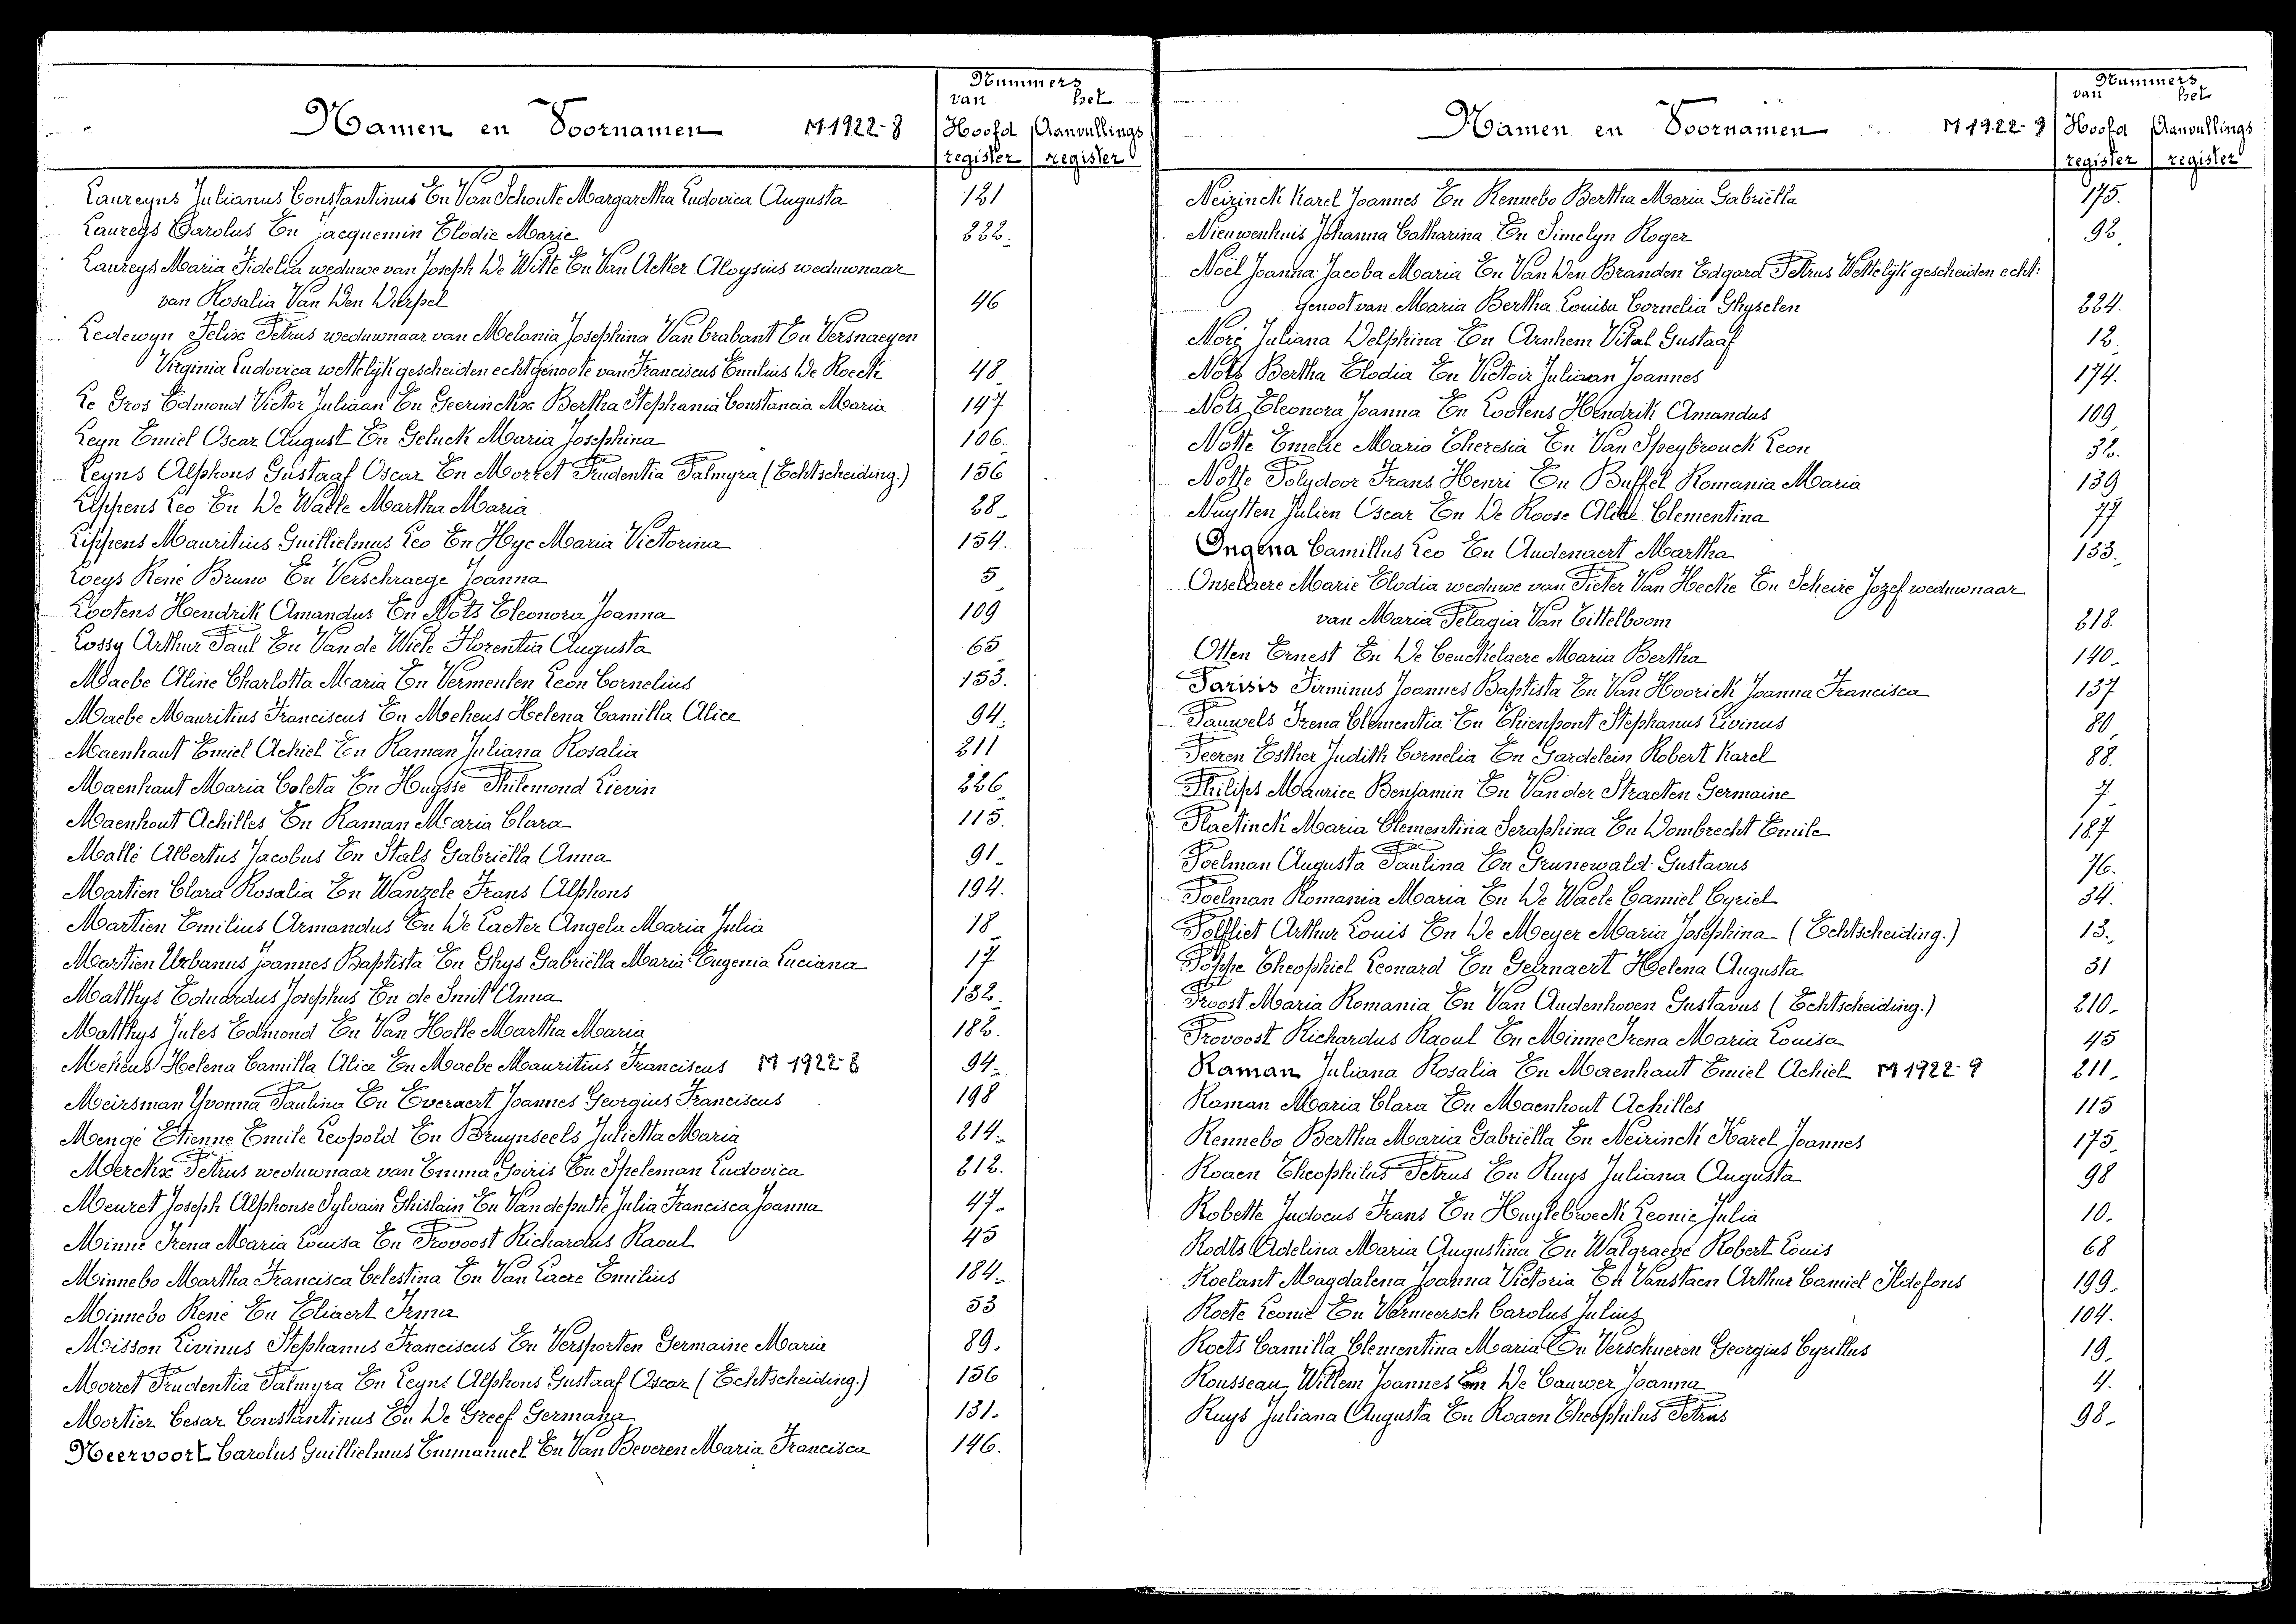 Nummers
van het
Namen en Voornamen M 1922-8 Hoofd Aanvullings
register register
Laureyns Julianus Constantinus En Van Schoute Margaretha Ludovica Augusta 121
Laureys Carolus En Jacquemin Elodie Marie 222.
Laureys Maria Fidelia weduwe van Joseph De Witte En Van Acker Aloysius weduwnaar
van Rosalia Van Den Durpel 46
Ledewyn Felix Petrus weduwnaar van Melania Josephina Van brabant En Versnaeyen
Virginia Ludovica wettelijk gescheiden echtgenoote van Franciscus Emilius De Roeck 48
Le Gros Edmond Victor Juliaan En Geerinckx Bertha Stephania Constancia Maria 147
Leyn Emiel Oscar August En Geluck Maria Josephina 106.
Leyns Alphons Gustaaf Oscar En Morret Prudentia Palmyra (Echtscheiding.) 156
Lippens Leo En De Waele Martha Maria 28
Lippens Mauritius Guillielmus Leo En Hye Maria Victorina 154.
Loeys René Bruno En Verschraege Joanna 5
Lootens Hendrik Amandus En Nots Eleonora Joanna 109
Lossy Arthur Paul En Van de Wiele Florentia Augusta 65
Maebe Aline Charlotta Maria En Vermeulen Leon Cornelius 153.
Maebe Mauritius Franciscus En Meheus Helena Camilla Alice 94.
Maenhaut Emiel Achiel En Raman Juliana Rosalia 211
Maenhaut Maria Coleta En Huysse Philemond Lievin 226
Maenhout Achilles En Raman Maria Clara 115.
Mallé Albertus Jacobus En Stals Gabriëlla Anna 91
Martien Clara Rosalia En Wanzele Frans Alphons 194.
Martien Emilius Armandus En De Caeter Angela Maria Julia 18
Martien Urbanus Joannes Baptista En Ghys Gabriëlla Maria Eugenia Luciana 17
Matthys Eduardus Josephus En de Smit Anna 132.
Matthys Jules Edmond En Van Holle Martha Maria 182.
Meheus Helena Camilla Alice En Maebe Mauritius Franciscus M 1922-8 94.
Meirsman Yvonna Paulina En Everaert Joannes Georgius Franciscus 198
Mengé Etienne Emile Leopold En Bruynseels Julietta Maria 214.
Merckx Petrus weduwnaar van Emma Goiris En Speleman Ludovica 212.
Meuret Joseph Alphonse Sylvain Ghislain En Vandeputte Julia Francisca Joanna 47
Minne Irena Maria Louisa En Provoost Richardus Raoul 45
Minnebo Martha Francisca Celestina En Van Laere Emilius 184.
Minnebo René En Eliaert Irma 53
Misson Livinus Stephanus Franciscus En Versporten Germaine Maria 89.
Morret Prudentia Palmyra En Leyns Alphons Gustaaf Oscar (Echtscheiding.) 156
Mortier Cesar Constantinus En De Greef Germana 131.
Neervoort Carolus Guillielmus Emmanuel En Van Beveren Maria Francisca 146.
Nummers
van het
Namen en Voornamen M 1922-9 Hoofd Aanvullings
register register
Neirinck Karel Joannes En Rennebo Bertha Maria Gabriëlla 175.
Nieuwenhuis Johanna Catharina En Simelyn Roger 92.
Noël Joanna Jacoba Maria En Van Den Branden Edgard Petrus Wettelijk gescheiden echt:
genoot van Maria Bertha Louisa Cornelia Ghyselen 224.
Noré Juliana Delphina En Arnhem Vital Gustaaf 12.
Nots Bertha Elodia En Victoir Juliaan Joannes 174.
Nots Eleonora Joanna En Lootens Hendrik Amandus 109
Notte Emelie Maria Theresia En Van Speybrouck Leon 32.
Notte Polydoor Frans Henri En Buffel Romania Maria 139
Nuytten Julien Oscar En De Roose Alice Clementina 77
Ongena Camillus Leo En Audenaert Martha 133.
Onselaere Marie Elodia weduwe van Pieter Van Hecke En Scheire Jozef weduwnaar
van Maria Pelagia Van Tittelboom 218.
Otten Ernest En De Ceuckelaere Maria Bertha 140.
Parisis Firminus Joannes Baptista En Van Hoorick Joanna Francisca 137
Pauwels Irena Clementia En Thienpont Stephanus Livinus 80
Peeren Esther Judith Cornelia En Gardelein Robert Karel 88.
Philips Maurice Benjamin En Van der Straeten Germaine 7.
Plaetinck Maria Clementina Seraphina En Dombrecht Emile 187
Poelman Augusta Paulina En Grunewald Gustavus 76.
Poelman Romania Maria En De Waele Camiel Cyriel 34.
Polfliet Arthur Louis En De Meyer Maria Josephina (Echtscheiding.) 13.
Poppe Theophiel Leonard En Geernaert Helena Augusta 31
Proost Maria Romania En Van Audenhoven Gustavus (Echtscheiding.) 210.
Provoost Richardus Raoul En Minne Irena Maria Louisa 45
Raman Juliana Rosalia En Maenhaut Emiel Achiel M 1922-9 211
Raman Maria Clara En Maenhout Achilles 115
Rennebo Bertha Maria Gabriëlla En Neirinck Karel Joannes 175
Roaen Theophilus Petrus En Ruys Juliana Augusta 98
Robette Judocus Frans En Huylebroeck Leonie Julia 10.
Rodts Adelina Maria Augustina En Walgraeve Robert Louis 68
Roelant Magdalena Joanna Victoria En Vanstaen Arthur Camiel Ildefons 199.
Roete Leonie En Vermeersch Carolus Julius 104.
Roets Camilla Clementina Maria En Verschueren Georgius Cyrillus 19.
Rousseau Willem Joannes En De Cauwer Joanna 4.
Ruys Juliana Augusta En Roaen Theophilus Petrus 98.